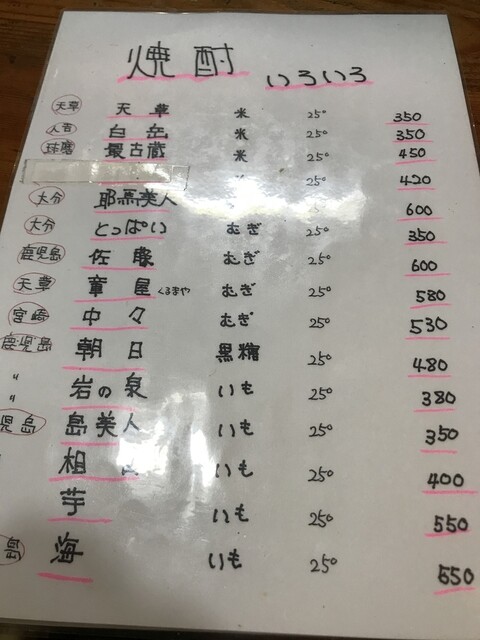 焼酎 いろいろ
天草 天草 米 25° 350
人吉 白岳 米 25° 350
球磨 最古蔵 米 25° 450
25° 420
大分 耶馬美人 600
大分 とっぱい むぎ 25° 350
鹿児島 佐藤 むぎ 25° 600
天草 車屋 くるまや むぎ 25° 580
宮崎 中々 むぎ 25° 530
鹿児島 朝日 黒糖 25° 480
〃 岩の泉 いも 25° 380
〃 島美人 いも 25° 350
児島 相 いも 25° 400
芋 いも 25° 550
島 海 いも 25° 550